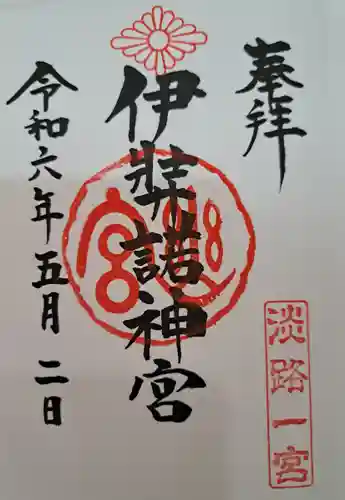 奉拝
伊弉諾神宮
令和六年五月二日
淡路一宮